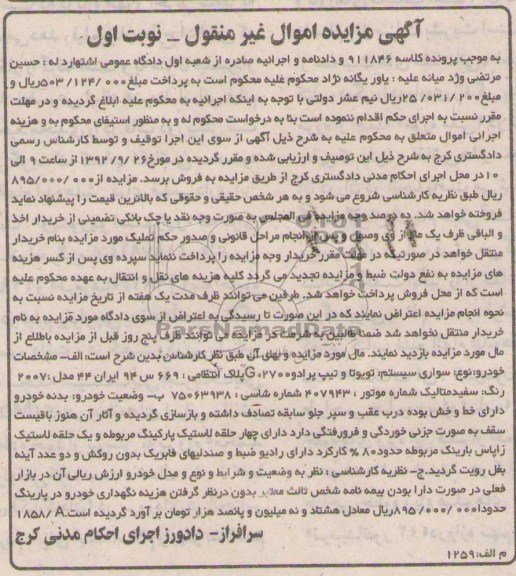 آگهی مزایده اموال غیر منقول - نوبت اول
به موجب پرونده کلاسه ۹۱۱۸۴۶ و دادنامه و اجرائیه صادره از شعبه اول دادگاه عمومی اشتهارد له : حسین
مرتضی وژد میانه علیه : یاور یگانه نژاد محکوم علیه محکوم است به پرداخت مبلغ۵۰۳/۱۲۴/۰۰۰ریال و
مبلغ۲۵/۰۳۱/۲۰۰ریال نیم عشر دولتی با توجه به اینکه اجرائیه به محکوم علیه ابلاغ گردیده و در مهلت
مقرر نسبت به اجرای حکم اقدام ننموده است بنا به درخواست محکوم له و به منظور استیفای محکوم به و هزینه
اجرائی اموال متعلق به محکوم علیه به شرح ذیل آگهی از سوی این اجرا توقیف و توسط کارشناس رسمی
دادگستری کرج به شرح ذیل این توصیف و ارزیابی شده و مقرر گردیده در مورخ۱۳۹۲/۹/۲۶ از ساعت ۹ الی
۱۰در محل اجرای احکام مدنی دادگستری کرج از طریق مزایده به فروش برسد. مزایده از۸۹۵/۰۰۰/۰۰۰
ریال طبق نظریه کارشناسی شروع می شود و به هر شخص حقیقی و حقوقی که بالاترین قیمت را پیشنهاد نماید
فروخته خواهد شد. ده درصد وجه مزایده فی المجلس به صورت وجه نقد یا چک بانکی تضمینی از خریدار اخذ
و الباقی ظرف یک ماه از وی وصول و پس از انجام مراحل قانونی و صدور حکم تملیک مورد مزایده بنام خریدار
منتقل خواهد در صورتیکه در مهلت مقرر خریدار وجه مزایده را پرداخت ننماید سپرده وی پس از کسر هزینه
های مزایده به نفع دولت ضبط و مزایده تجدید می گردد کلیه هزینه های نقل و انتقال به عهده محکوم علیه
است که از محل فروش پرداخت خواهد شد. طرفین می توانند ظرف مدت یک هفته از تاریخ مزایده نسبت به
نحوه انجام مزایده اعتراض نمایند که در این صورت تا رسیدگی به اعتراض از سوی دادگاه مورد مزایده به نام
خریدار منتقل نخواهد شد ضمنا طالبین به شرکت در مزایده می توانند ظرف پنج روز قبل از مزایده باطلاع از
مال مورد مزایده بازدید نمایند. مال مورد مزایده و بهای آن طبق نظر کارشناس بدین شرح است: الف- مشخصات
خودرو:نوع: سواری سیستم: تویوتا و تیپ پرادو۲۷۰۰،Gپلاک انتظامی : ۶۶۹ س ۹۴ ایران ۴۴ مدل :۲۰۰۷
رنگ: سفیدمتالیک شماره موتور : ۴۰۷۹۴۳ شماره شاسی : ۷۵۰۶۳۹۳۸ ب- وضعیت خودرو: بدنه خودرو
دارای خط و خش بوده درب عقب و سپر جلو سابقه تصادف داشته و بازسازی گردیده و آثار آن هنوز باقیست
سقف به صورت جزئی خوردگی و فرورفتگی دارد دارای چهار حلقه لاستیک پارکینگ مربوطه و یک حلقه لاستیک
زاپاس بارینگ مربوطه حدود۸۰ % کارکرد دارای رادیو ضبط و صندلیهای فابریک بدون روکش و دو عدد آینه
بغل رویت گردید.ج- نظریه کارشناسی : نظر به وضعیت و شرایط و نوع و مدل خودرو ارزش ریالی آن در بازار
فعلی در صورت دارا بودن بیمه نامه شخص ثالث معتبر بدون درنظر گرفتن هزینه نگهداری خودرو در پارینگ
حدودا۸۹۵/۰۰۰/۰۰۰ریال معادل هشتاد و نه میلیون و پانصد هزار تومان بر آورد گردیده است.۱۸۵۸/A
سرافراز- دادورز اجرای احکام مدنی کرج
م الف:۱۲۵۹
ParsNamadData